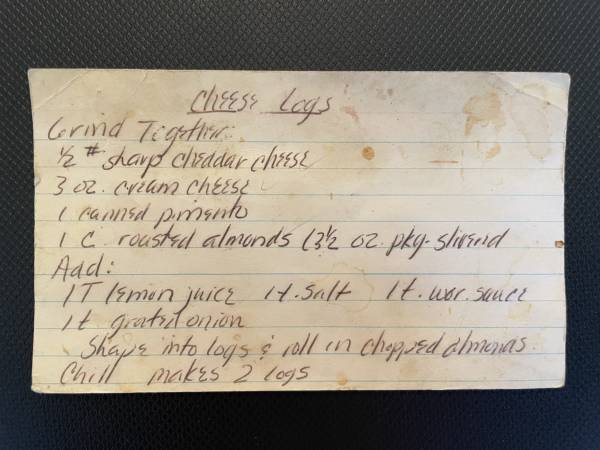 Cheese Logs
Grind Together:
1/2 # sharp cheddar cheese
3 oz. cream cheese
1 canned pimento
1 C. roasted almonds (3 1/2 oz. pkg. sliverd
Add:
1T lemon juice 1t. salt 1t. wor. sauce
1t grated onion
Shape into logs & roll in chopped almonds.
Chill makes 2 logs